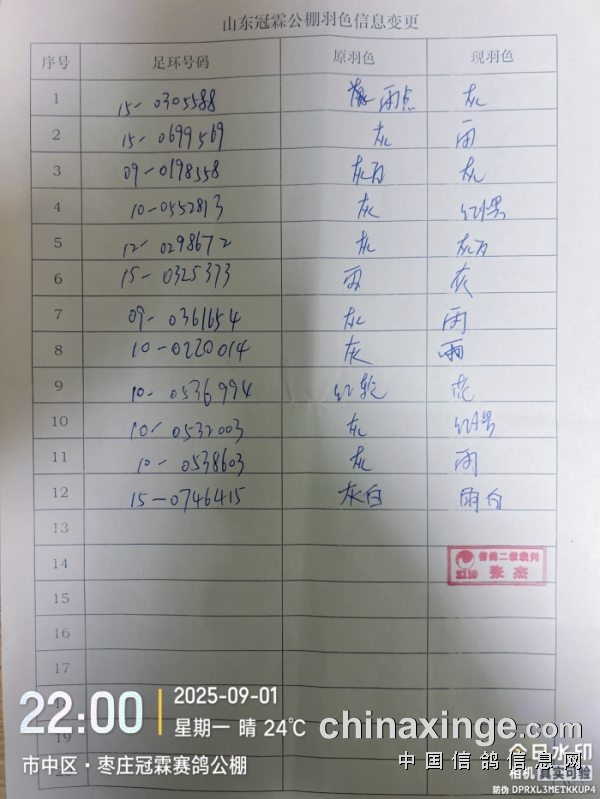 山东冠霖公棚羽色信息变更
序号 足环号码 原羽色 现羽色
1 15-0305588 雨点 灰
2 15-0699569 灰 雨
3 09-0198558 灰白 灰
4 10-0552813 灰
5 12-0298672 灰 灰白
6 15-0325373 雨 灰
7 09-0361654 灰 雨
8 10-0220014 灰 雨
9 10-0536994 红轮 花
10 10-0532003 灰
11 10-0538603 灰 雨
12 15-0746415 灰白 雨白
13
14
15
16
17
19
信鸽二级裁判
2110 张杰
22:00 2025-09-01
星期一 晴 24℃
市中区·枣庄冠霖赛鸽公棚
chinaxinge.com
中国信鸽信息网
今日水印
相机 真实可验
防伪 DPRXL3METKKUP4